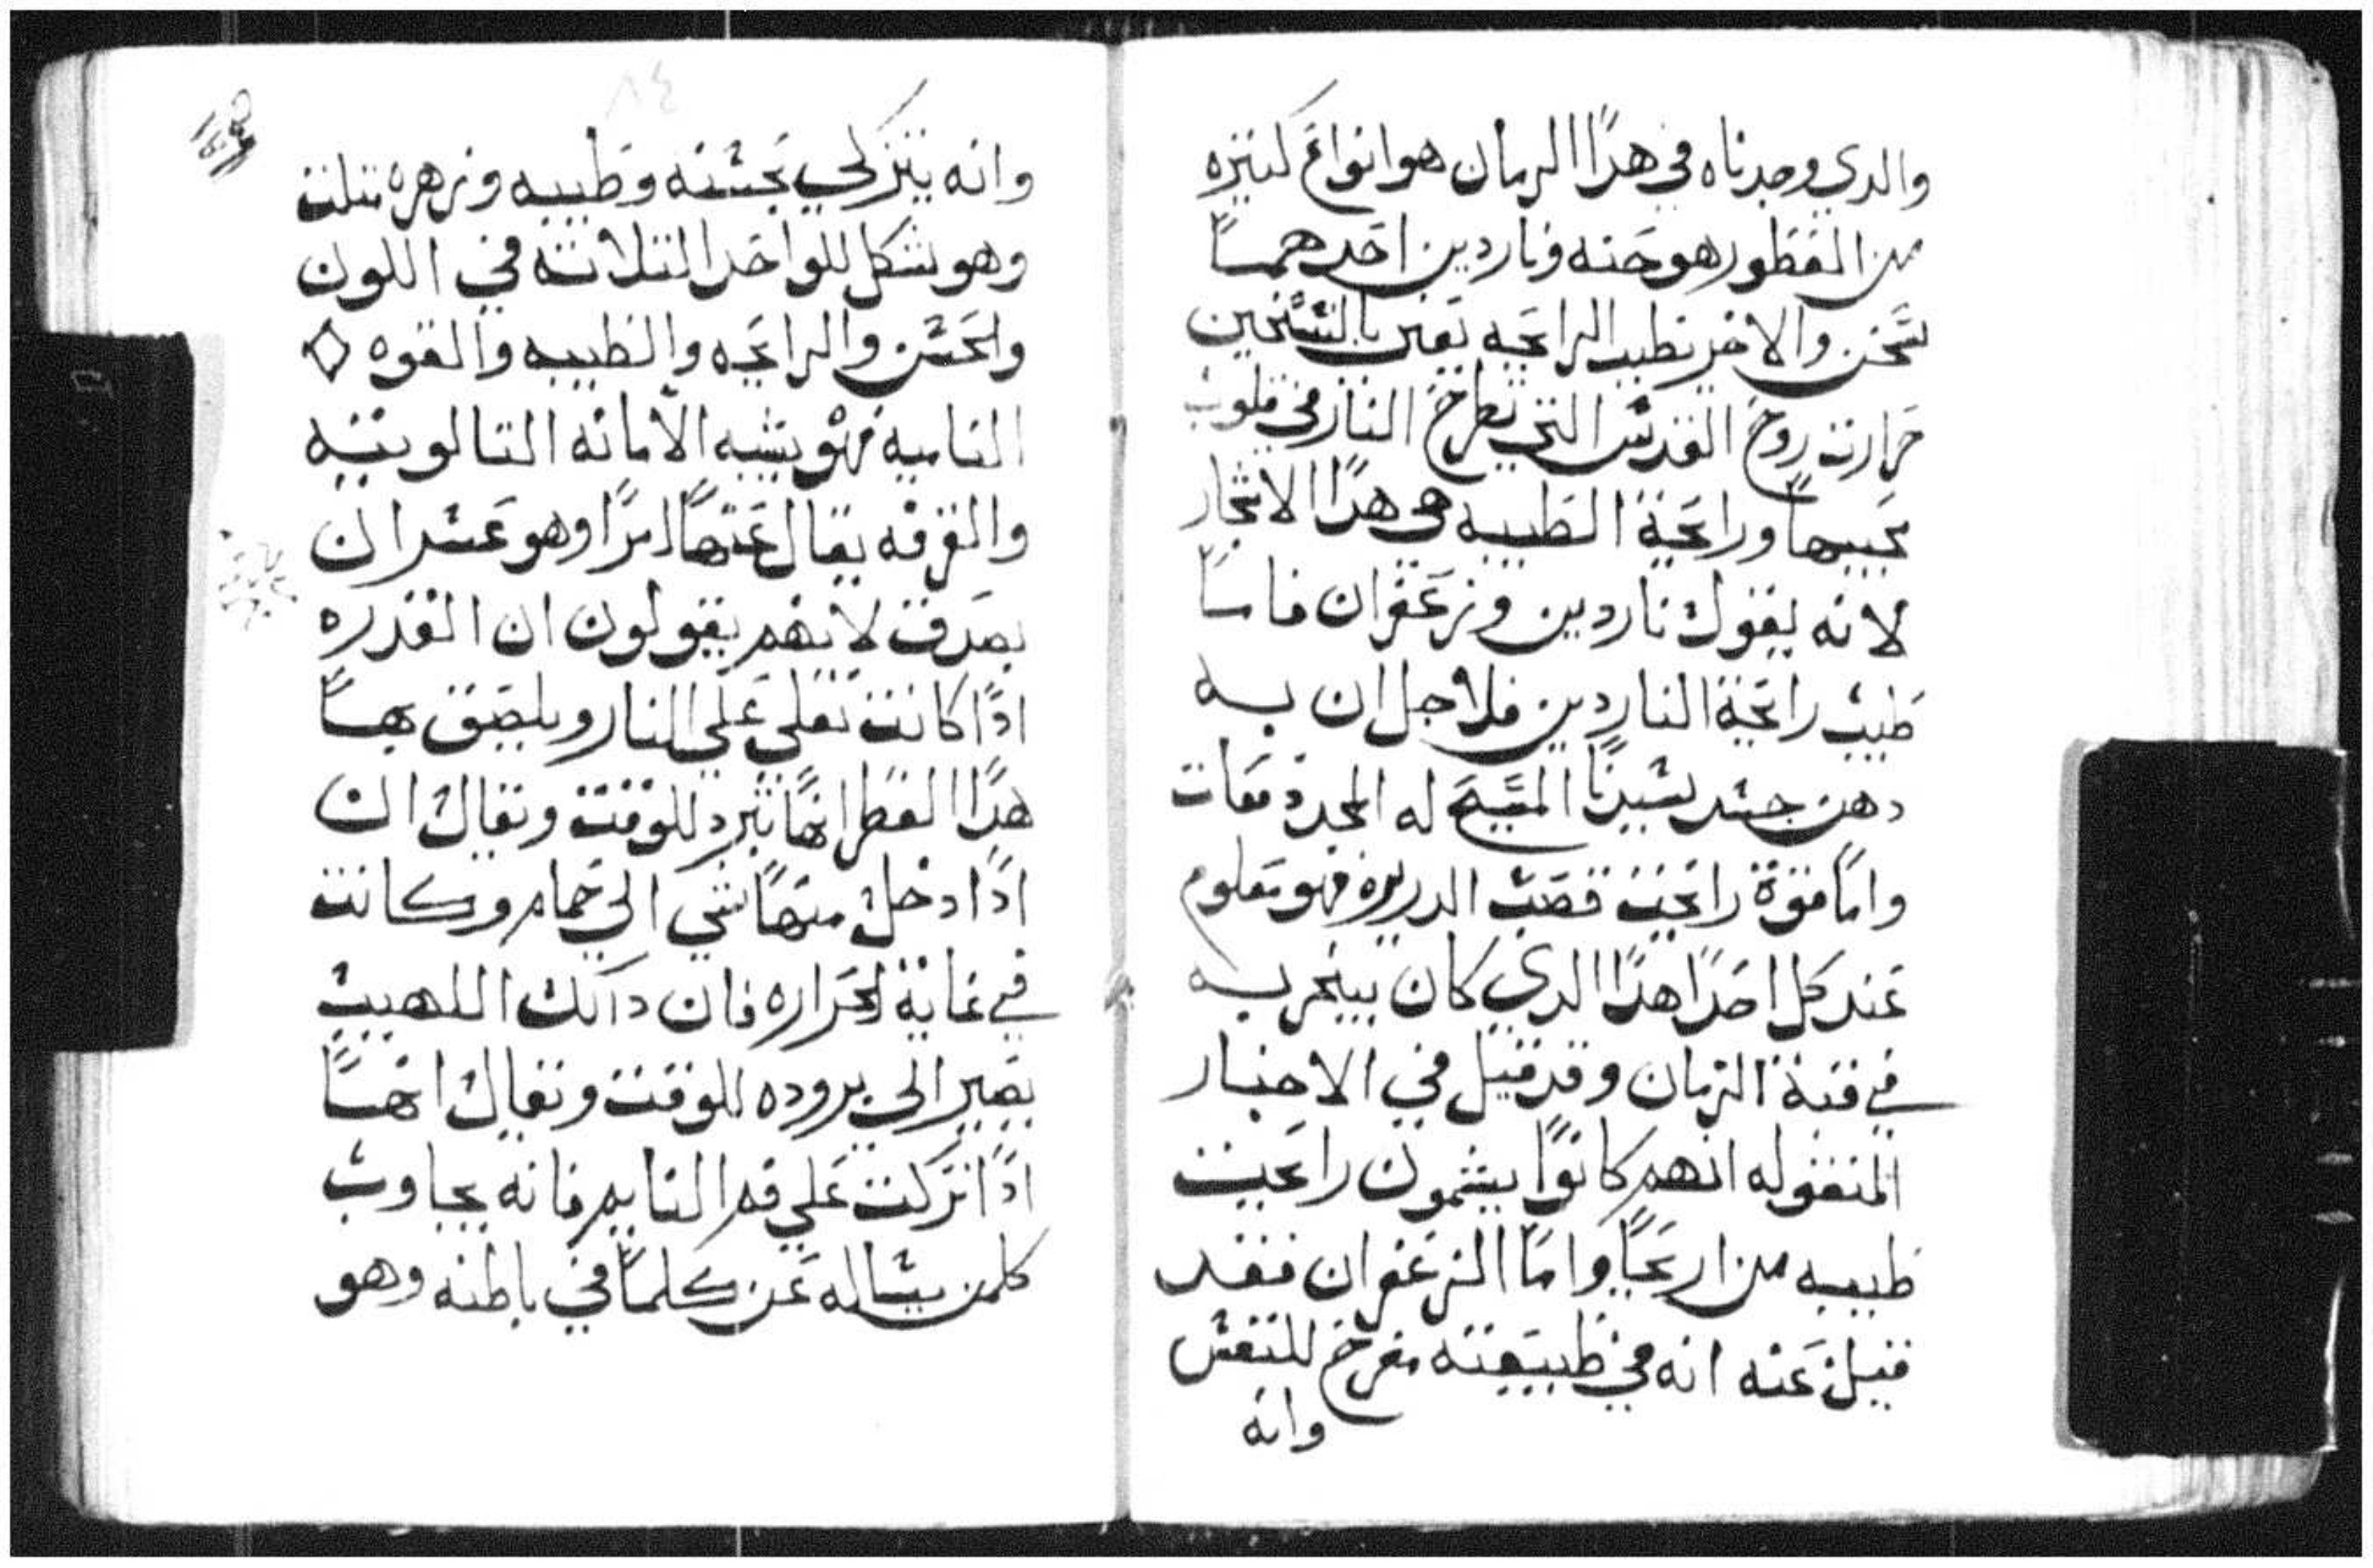 والدي وجدناه في هدا الرمان هو انواع كتيره
من العطور هو حنه وناردين احدهما
تسخن والاخر تطيب الراىحه تعني بالتسخين
حرارت روح القدس التي تطرح النار في قلوب
محبيها وراىحة الطيبه هي هدا الاتجار
لانه يقول ناردين وزعفران فاما
طيب راىحة الناردين فلاجل ان به
دهن جسد سيدنا المسيح له المجد معات
واما قوة راىحت قصب الدريره فهو معلوم
عند كل احدا هدا الدي كان يبخر به
في قبة الزمان وقد قيل في الاخبار
المنقوله انهم كانوا يشمون راىحت
طيبه من اريحا واما الزعفران فقد
قيل عنه انه في طبيعته مفرح للنفس
وانه
٨٤
وانه يتزكي بحسنه وطيبه وزهره تلت
وهو شكل للواحد التلاته في اللون
والحسن والراىحه والطيبه والقوه
الناميه فهو يشبه الامانه التالوتيه
والقرفه يقال عنها امرا وهو عسر ان
يصدق لانهم يقولون ان القدره
ادا كانت تغلي علي النار ويلصق بها
هدا العطر انها تبرد للوقت وتقال ان
ادا دخل منها شي الي حمام وكانت
في غاية الحراره فان دالك اللهيب
يصير الي بروده للوقت وتقال انها
ادا تركت علي فم النايم فانه يجاوب
كلمن يساله عن كلما في باطنه وهو